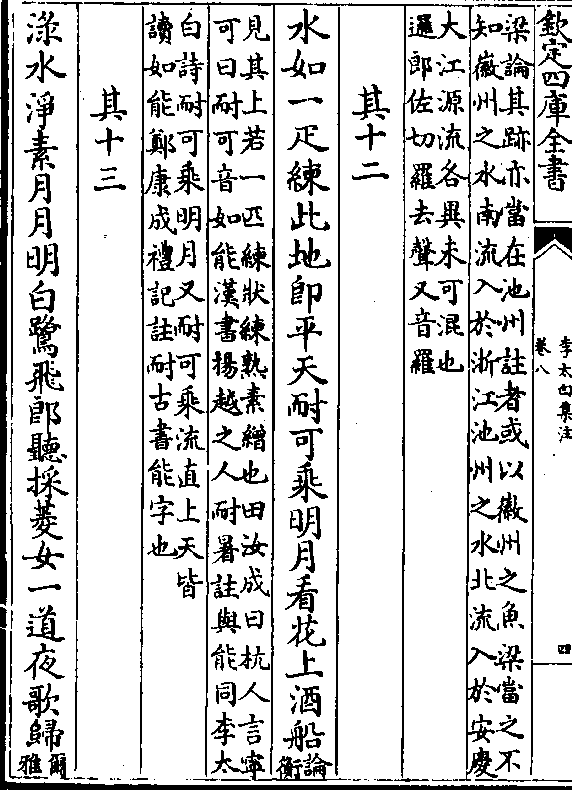 欽定四庫全書
李太白集注
卷八
四
梁論其跡亦當在池州註者或以徽州之魚梁當之不
知徽州之水南流入於浙江池州之水北流入於安慶
大江源流各異未可混也
邏郎佐切羅去聲又音羅
其十二
水如一疋練此地即平天耐可乘明月看花上酒船論衡
見其上若一匹練狀練熟素繒也田汝成曰杭人言寧
可曰耐可音如能漢書揚越之人耐暑註與能同李太
白詩耐可乘明月又耐可乘流直上天皆
讀如能鄭康成禮記註耐古書能字也
其十三
淥水淨素月月明白鷺飛郎聽採菱女一道夜歌歸爾雅